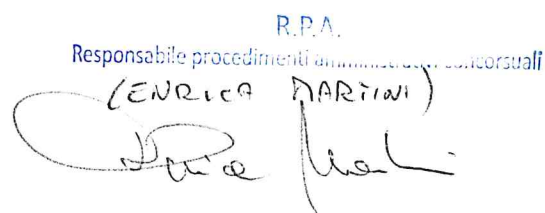 R.P.A.
Responsabile procedimenti amministrativi concorsuali
(ENRICA MARTINI)
Enrica Martini